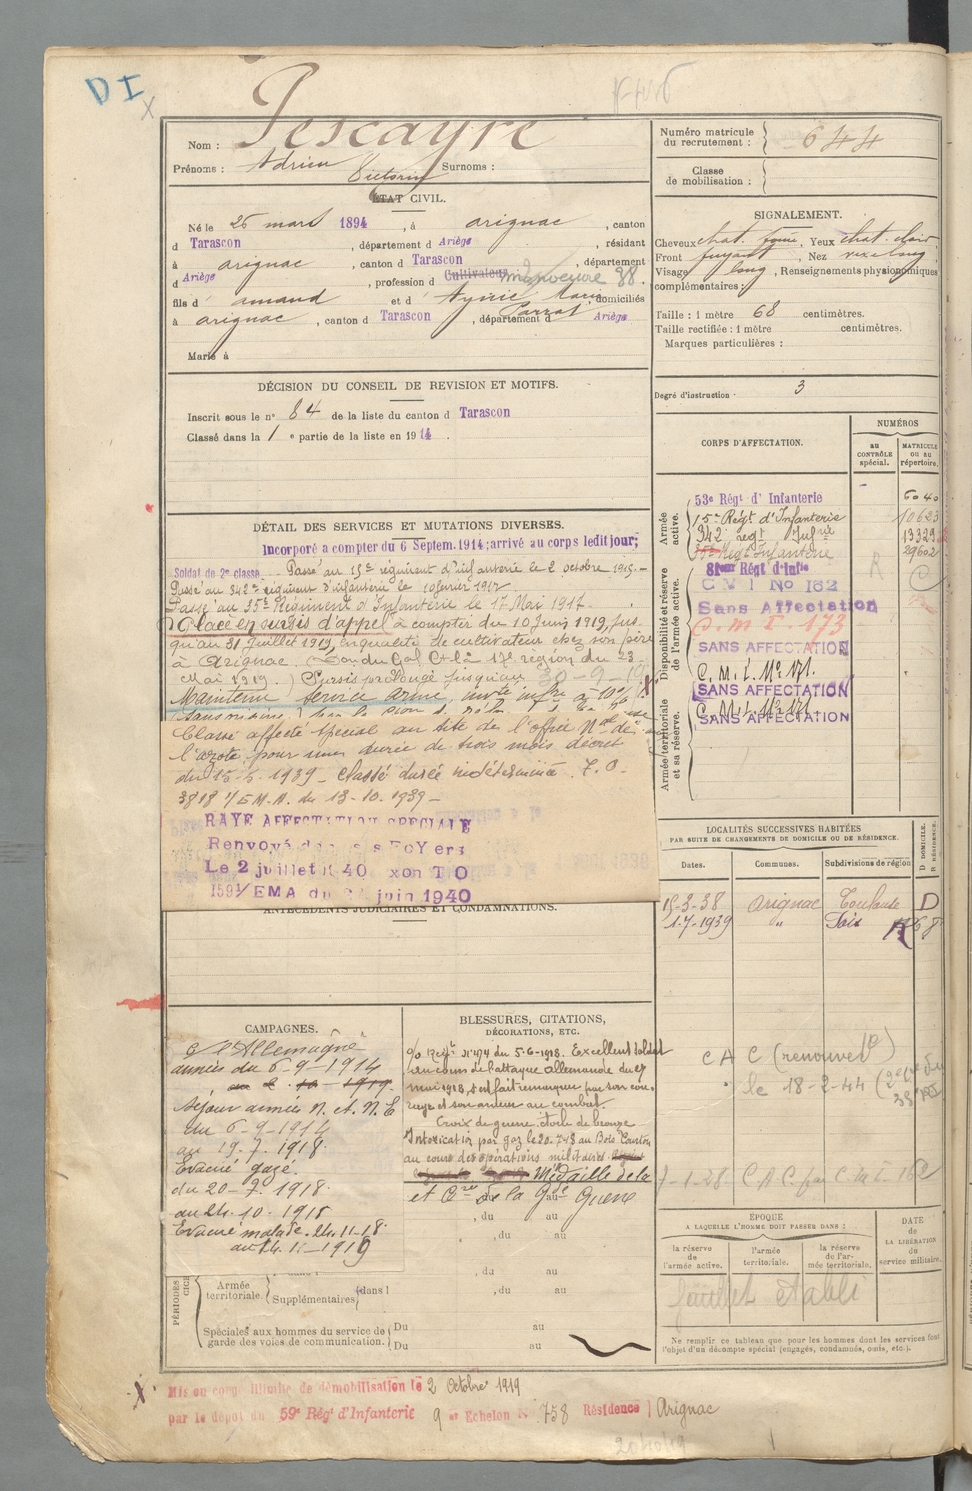 DI
Nom : Pescayré
Prénoms : Adrien Victorin Surnoms :
ÉTAT CIVIL.
Né le 26 mars 1894, à arignac, canton
d Tarascon, département d Ariège, résidant
à arignac, canton d Tarascon, département
d Ariège, profession d Cultivateur manoeuvre 38.
fils d' amand et d' domiciliés
à arignac, canton d Tarascon, département d Ariège
Marié à
DÉCISION DU CONSEIL DE REVISION ET MOTIFS.
Inscrit sous le n° 84 de la liste du canton d Tarascon
Classé dans la 1 e partie de la liste en 1914.
DÉTAIL DES SERVICES ET MUTATIONS DIVERSES.
Incorporé a compter du 6 Septem. 1914; arrivé au corps ledit jour;
Soldat de 2e classe. Passé au 15e régiment d'infanterie le 2 octobre 1915.
Passé au 342e régiment d'infanterie le 10 février 1917
Passé au 35e Régiment d'Infanterie le 17 Mai 1917.
Placé en sursis d'appel à compter du 10 Juin 1919, jus-
qu'au 31 Juillet 1919, en qualité de cultivateur chez son père
à Arignac. Don du Gal Ct la 17e région du 23
Mai 1919. Sursis prolongé jusqu'au 30-9-19
Maintenu service armé, invte infre à 10%
Classé affecté spécial au titre de l'office Nal de
l'azote pour une durée de trois mois décret
du 15-6-1939 - Classé durée indéterminée. T.O.
3818 1/E.M.A. du 13-10-1939 -
RAYE AFFECTATION SPECIALE
Renvoyé dans ses Foyers
Le 2 juillet 1940 xon T O
1591/EMA du juin 1940
ANTÉCÉDENTS JUDICIAIRES ET CONDAMNATIONS.
CAMPAGNES.
C l'Allemagne
années du 6-9-1914
au 2 10 1919
Séjour armées N. et N.E
du 6-9-1914
au 19.7.1918.
Evacué gazé.
du 20-7.1918.
au 24-10-1918
Evacué malade. 24.11-18.
au 14.1-1919
BLESSURES, CITATIONS,
DÉCORATIONS, ETC.
o/o Régt n° 474 du 5-6-1918. Excellent soldat
Au cours de l'attaque Allemande du 27
mai 1918, s'est fait remarquer par son cou-
rage et son ardeur au combat.
Croix de guerre étoile de bronze
Intoxication par gaz le 20-7-18 au Bois Courton
au cours des opérations militaires
Médaille de la
et Cre de la Gde Guerre
, du au
, du au
, du au
, du au
PÉRIODES
Armée territoriale. Supplémentaires dans l
Spéciales aux hommes du service de garde des voies de communication. Du au
Du au
Mis en congé illimité de démobilisation le 2 Octobre 1919
par le dépôt du 59e Régt d'Infanterie 9 me Echelon N° 758 Résidence Arignac
Numéro matricule du recrutement : 644
Classe de mobilisation :
SIGNALEMENT.
Cheveux chat. foncé, Yeux chat. clair,
Front fuyant, Nez rex long,
Visage long, Renseignements physionomiques
complémentaires :
Taille : 1 mètre 68 centimètres.
Taille rectifiée : 1 mètre centimètres.
Marques particulières :
Degré d'instruction : 3
CORPS D'AFFECTATION.
NUMÉROS
AU CONTRÔLE spécial.
MATRICULE ou au répertoire.
Armée active.
53e Régt d' Infanterie 6040
15e Régt d'Infanterie 10623
342 regt Infrie 13329
35e Régt Infanterie 29602
Disponibilité et réserve de l'armée active.
81eme Régt d'Infie
C M I No 162
Sans Affectation
C.M.I. 173
SANS AFFECTATION
C.M.I. N° 171.
SANS AFFECTATION
C.M.I. N° 171.
SANS AFFECTATION
Armée territoriale et sa réserve.
LOCALITÉS SUCCESSIVES HABITÉES
PAR SUITE DE CHANGEMENTS DE DOMICILE OU DE RÉSIDENCE.
Dates. Communes. Subdivisions de région D DOMICILE. R RÉSIDENCE.
15-3-38 Arignac Toulouse D
1-7-1939 " Foix
C A C (renouvelé)
le 18-2-44
7-1-28 C A C par C M I 162
ÉPOQUE
A LAQUELLE L'HOMME DOIT PASSER DANS :
la réserve de l'armée active.
l'armée territoriale.
la réserve de l'armée territoriale.
DATE de LA LIBÉRATION du service militaire.
feuillet établi
Ne remplir ce tableau que pour les hommes dont les services font
l'objet d'un décompte spécial (engagés, condamnés, omis, etc.).